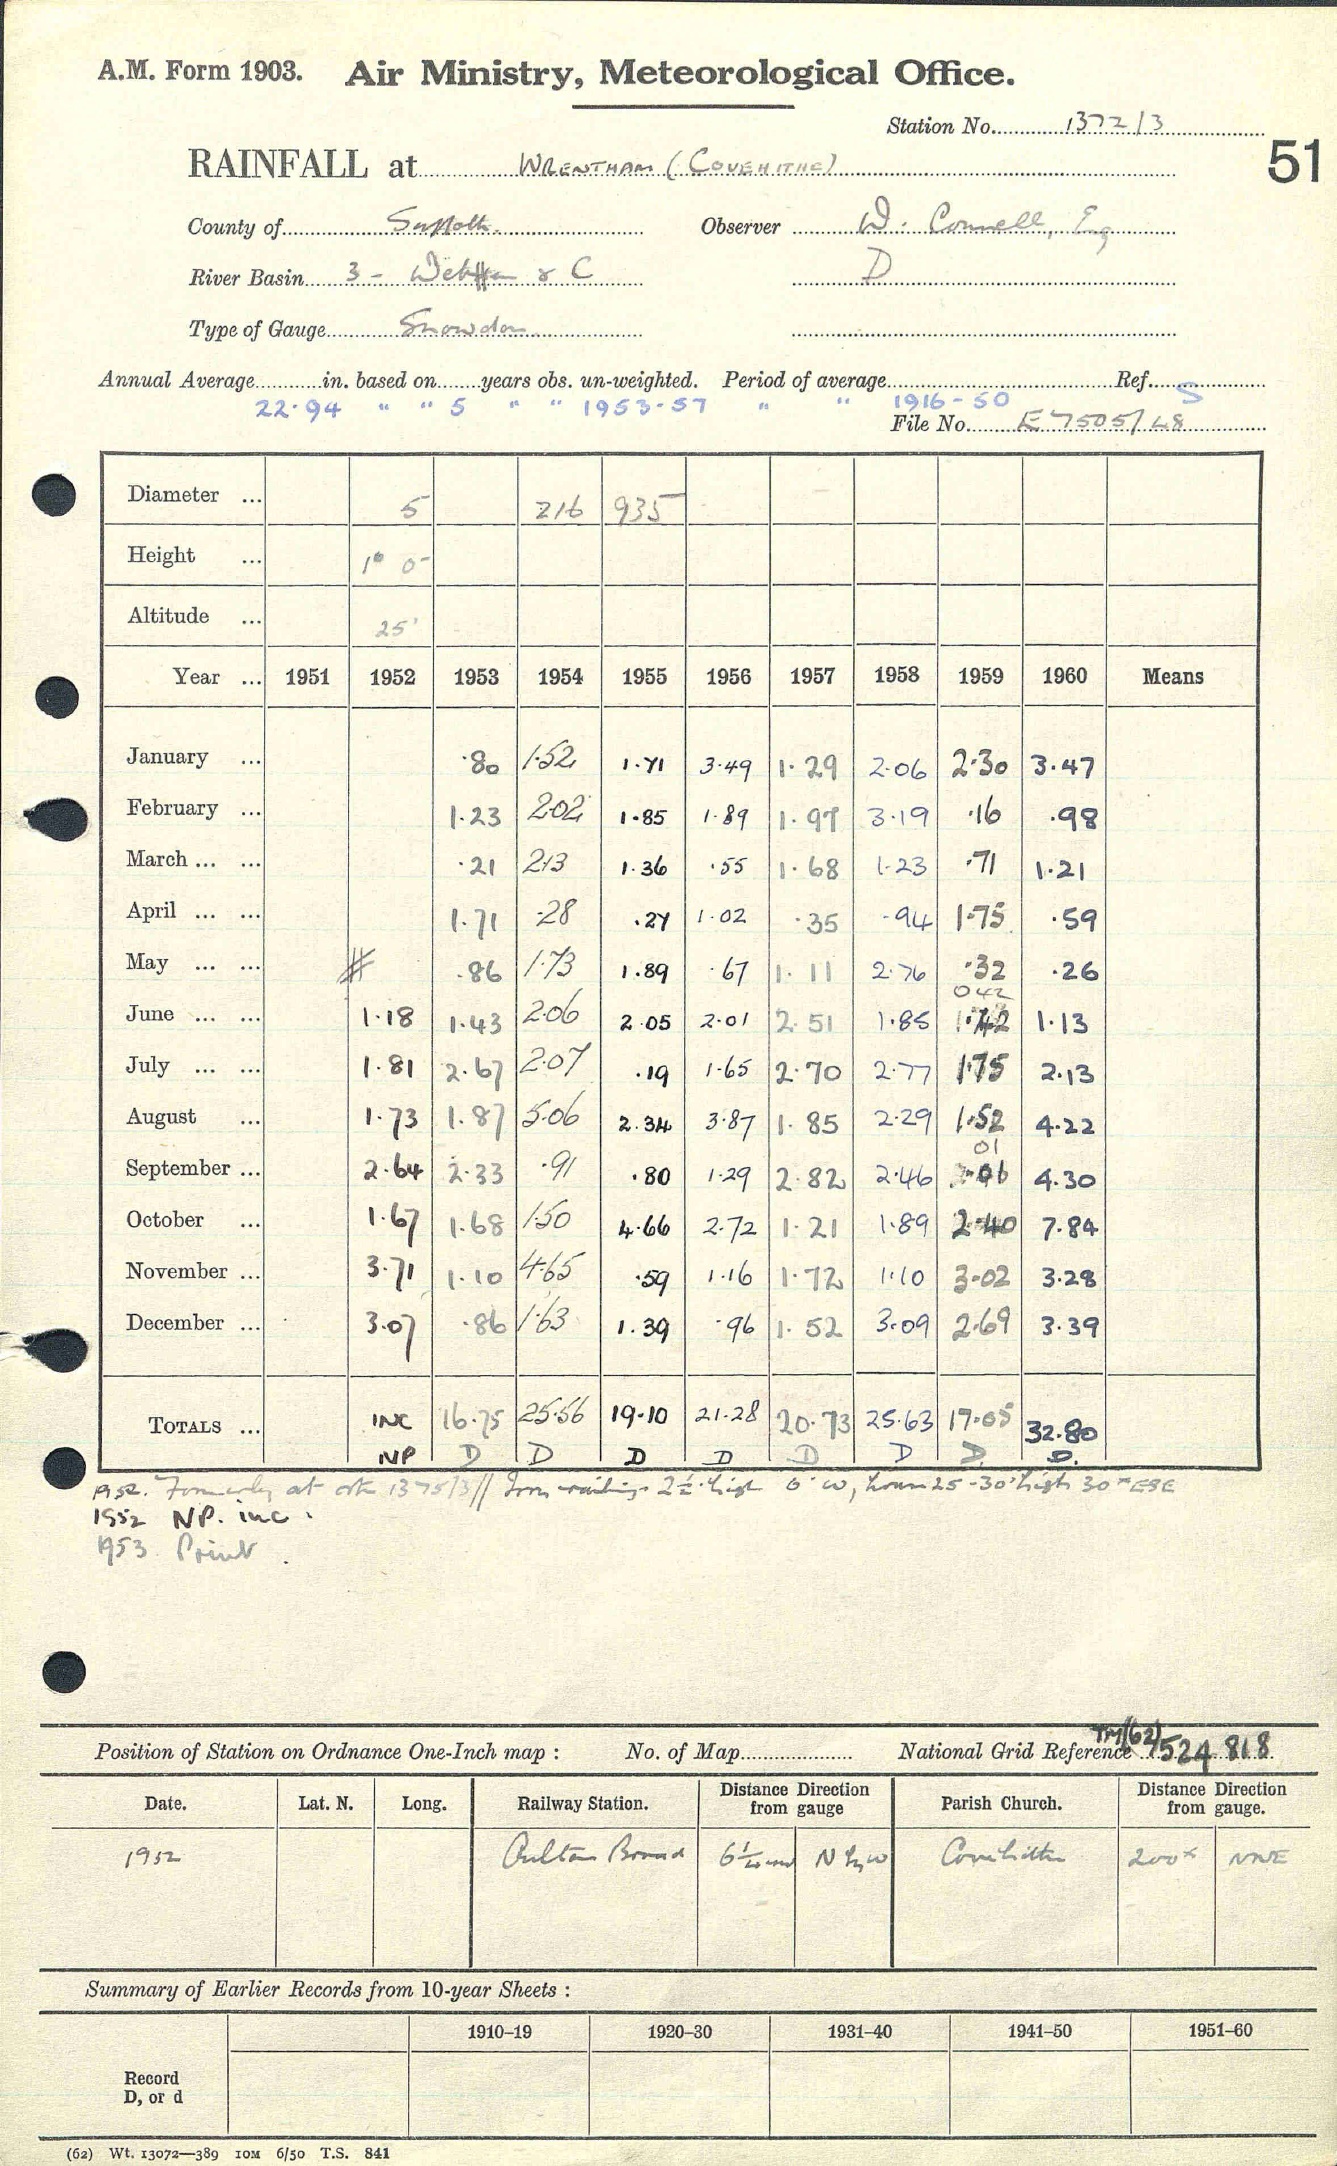 A.M. Form 1903. Air Ministry, Meteorological Office.
Station No. 1372/3
51
RAINFALL at WRENTHAM (COVEHITHE)
County of Suffolk. Observer W. Connell, Esq
River Basin 3 - & C D
Type of Gauge Snowdon
Annual Average in. based on years obs. un-weighted. Period of average Ref. S
22.94 " " 5 " " 1953-57 " " 1916-50
File No. E 7505/48
Diameter ... 5 216 935
Height ... 1' 0"
Altitude ... 25'
Year ... 1951 1952 1953 1954 1955 1956 1957 1958 1959 1960 Means
January ... .80 1.52 1.71 3.49 1.29 2.06 2.30 3.47
February ... 1.23 2.02 1.85 1.89 1.97 3.19 .16 .98
March ... ... .21 2.13 1.36 .55 1.68 1.23 .71 1.21
April ... ... 1.71 .28 .27 1.02 .35 .94 1.75 .59
May ... ... .86 1.73 1.89 .67 1.11 2.76 .32 .26
042
June ... ... 1.18 1.43 2.06 2.05 2.01 2.51 1.85 1.13
July ... ... 1.81 2.67 2.07 .19 1.65 2.70 2.77 1.75 2.13
August ... 1.73 1.87 5.06 2.34 3.87 1.85 2.29 1.52 4.22
01
September ... 2.64 2.33 .91 .80 1.29 2.82 2.46 4.30
October ... 1.67 1.68 1.50 4.66 2.72 1.21 1.89 2.40 7.84
November ... 3.71 1.10 4.65 .59 1.16 1.72 1.10 3.02 3.28
December ... 3.07 .86 1.63 1.39 .96 1.52 3.09 2.69 3.39
TOTALS ... INC 16.75 25.56 19.10 21.28 20.73 25.63 17.05 32.80
NP D D D D D D D D.
1952. Formerly at 1375/3 // Iron railings 2½' high 6' W, house 25-30' high 30' ESE
1952 NP. inc.
1953 Print.
Position of Station on Ordnance One-Inch map : No. of Map National Grid Reference TM(62) 524 818
Date. Lat. N. Long. Railway Station. Distance Direction from gauge Parish Church. Distance Direction from gauge.
1952 Oulton Broad N by W Covehithe 200x NNE
Summary of Earlier Records from 10-year Sheets :
1910–19 1920–30 1931–40 1941–50 1951–60
Record
D, or d
(62) Wt. 13072—389 10M 6/50 T.S. 841